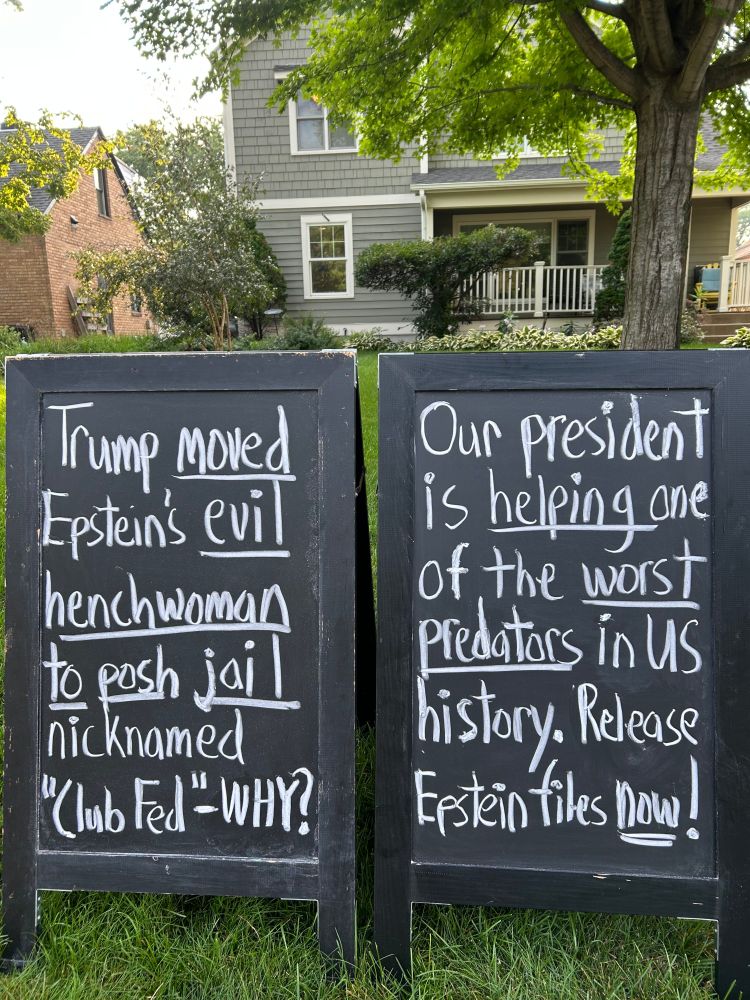 Trump moved
Epstein's evil
henchwoman
to posh jail
nicknamed
"Club Fed"-WHY?
Our president
is helping one
of the worst
predators in US
history. Release
Epstein files now!